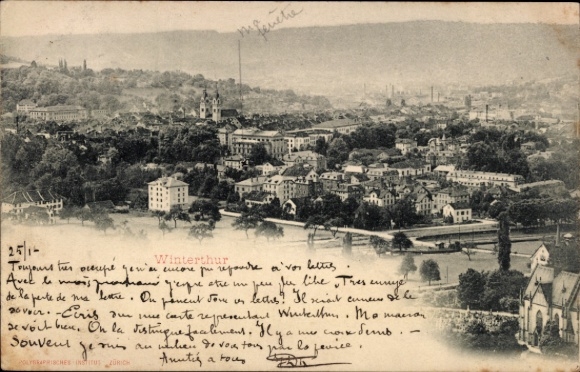 ma fenêtre
Winterthur
25/1 -
Toujours très occupé je n'ai encore pu répondre à vos lettres
Avec le mois prochain j'espère être un peu plus libre. Très ennuyé
de la perte de ma lettre. On prévient donc les lettres! Il serait curieux de
le voir. - Ecris sur une carte représentant Winterthur. Ma maison
se voit bien. On la distingue facilement. Il y a une croix dessus -
Souvent je suis au milieu de vous tous par la pensée.
Amitiés à tous
POLYGRAPHISCHES INSTITUT ZÜRICH